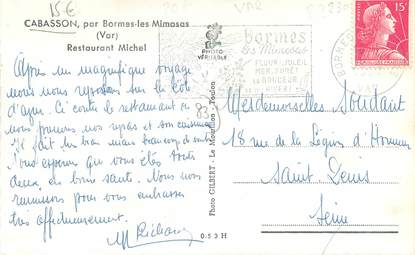 15€
VAR
CABASSON, par Bormes-les Mimosas
(Var)
Restaurant Michel
PHOTO
VÉRITABLE
bormes
les Mimosas
FLEUR SOLEIL
MER FORÊT
15F
POSTES
Après un magnifique voyage
nous nous reposons sur la Côte
d'azur. Ci contre le restaurant où
nous prenons nos repas et son cuisinier
Il fait très bon mais beaucoup de vent
Nous espérons que vous êtes toutes
deux en bonne santé. Nous nous
réunissons pour vous embrasser
très affectueusement.
83
Photo GILBERT - Le Mourillon - Toulon
Mesdemoiselles Soudain
18 rue de la Légion d'Honneur
Saint Denis
Seine
053H